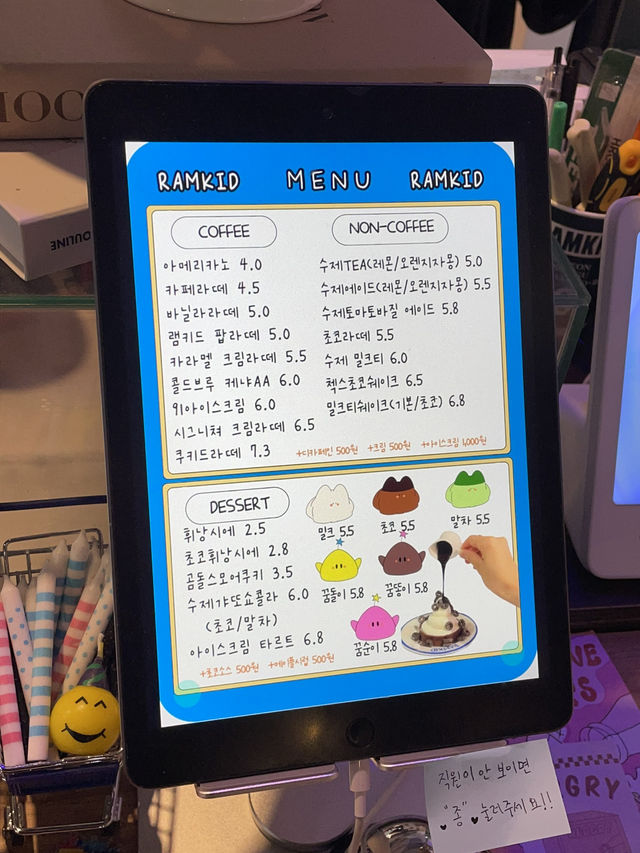 RAMKID MENU RAMKID
COFFEE
아메리카노 4.0
카페라떼 4.5
바닐라라떼 5.0
램키드 팝라떼 5.0
카라멜 크림라떼 5.5
콜드브루 케냐AA 6.0
91아이스크림 6.0
시그니쳐 크림라떼 6.5
쿠키드라떼 7.3
NON-COFFEE
수제TEA(레몬/오렌지자몽) 5.0
수제에이드(레몬/오렌지자몽) 5.5
수제토마토바질 에이드 5.8
초코라떼 5.5
수제 밀크티 6.0
첵스초코쉐이크 6.5
밀크티쉐이크(기본/초코) 6.8
+디카페인 500원 +크림 500원 +아이스크림 1,000원
DESSERT
휘낭시에 2.5
초코휘낭시에 2.8
곰돌스모어쿠키 3.5
수제갸또쇼콜라 6.0
(초코/말차)
아이스크림 타르트 6.8
+초코소스 500원 +메이플시럽 500원
밀크 5.5
초코 5.5
말차 5.5
꿈돌이 5.8
꿈뚱이 5.8
꿈순이 5.8
직원이 안 보이면
"종" 눌러주세요!!
GRY